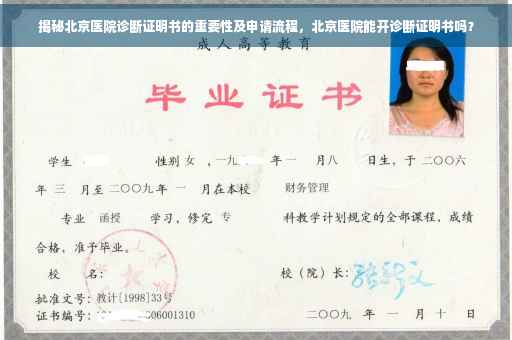 揭秘北京医院诊断证明书的重要性及申请流程，北京医院能开诊断证明书吗？
成人高等教育
毕业证书
学生 性别 女 ，一九 年 一 月八 日生，于 二〇〇六
年 三 月至 二〇〇九 年 一 月在本校 财务管理
专业 函授 学习，修完 专 科教学计划规定的全部课程，成绩
合格，准予毕业。
校 名： 校（院）长：
批准文号：教计[1998]33号
证书编号： 06001310 二〇〇九 年 一 月 十 日